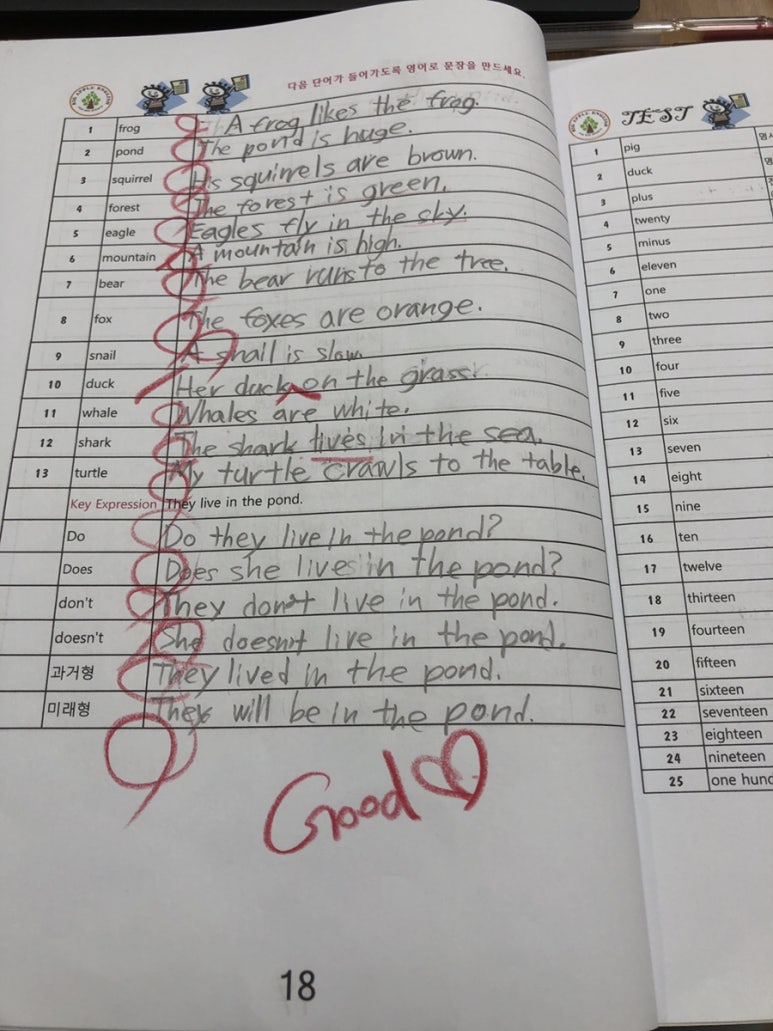 다음 단어가 들어가도록 영어로 문장을 만드세요.
1 frog A frog likes the frog.
2 pond The pond is huge.
3 squirrel His squirrels are brown.
4 forest The forest is green.
5 eagle Eagles fly in the sky.
6 mountain A mountain is high.
7 bear The bear runs to the tree.
8 fox The foxes are orange.
9 snail A snail is slow.
10 duck Her duck on the grass.
11 whale Whales are white.
12 shark The shark lives in the sea.
13 turtle My turtle crawls to the table.
Key Expression They live in the pond.
Do Do they live in the pond?
Does Does she lives in the pond?
don't They don't live in the pond.
doesn't She doesn't live in the pond.
과거형 They lived in the pond.
미래형 They will be in the pond.
Good
18
TEST
1 pig
2 duck
3 plus
4 twenty
5 minus
6 eleven
7 one
8 two
9 three
10 four
11 five
12 six
13 seven
14 eight
15 nine
16 ten
17 twelve
18 thirteen
19 fourteen
20 fifteen
21 sixteen
22 seventeen
23 eighteen
24 nineteen
25 one hund